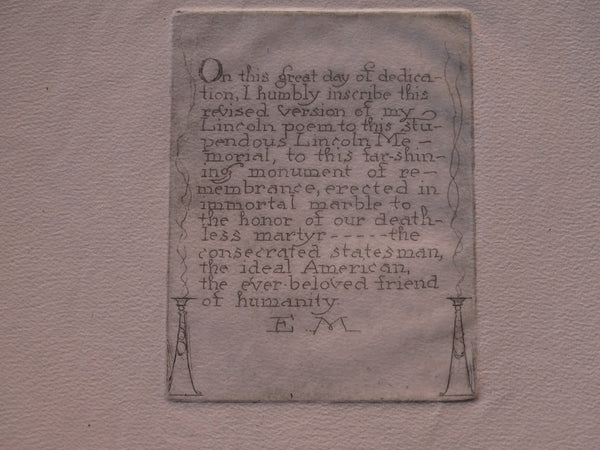 On this great day of dedica-
tion, I humbly inscribe this
revised version of my
Lincoln poem to this stu-
pendous Lincoln Me-
morial, to this far-shin-
ing monument of re-
membrance, erected in
immortal marble to
the honor of our death-
less martyr-----the
consecrated statesman,
the ideal American,
the ever-beloved friend
of humanity.
E M